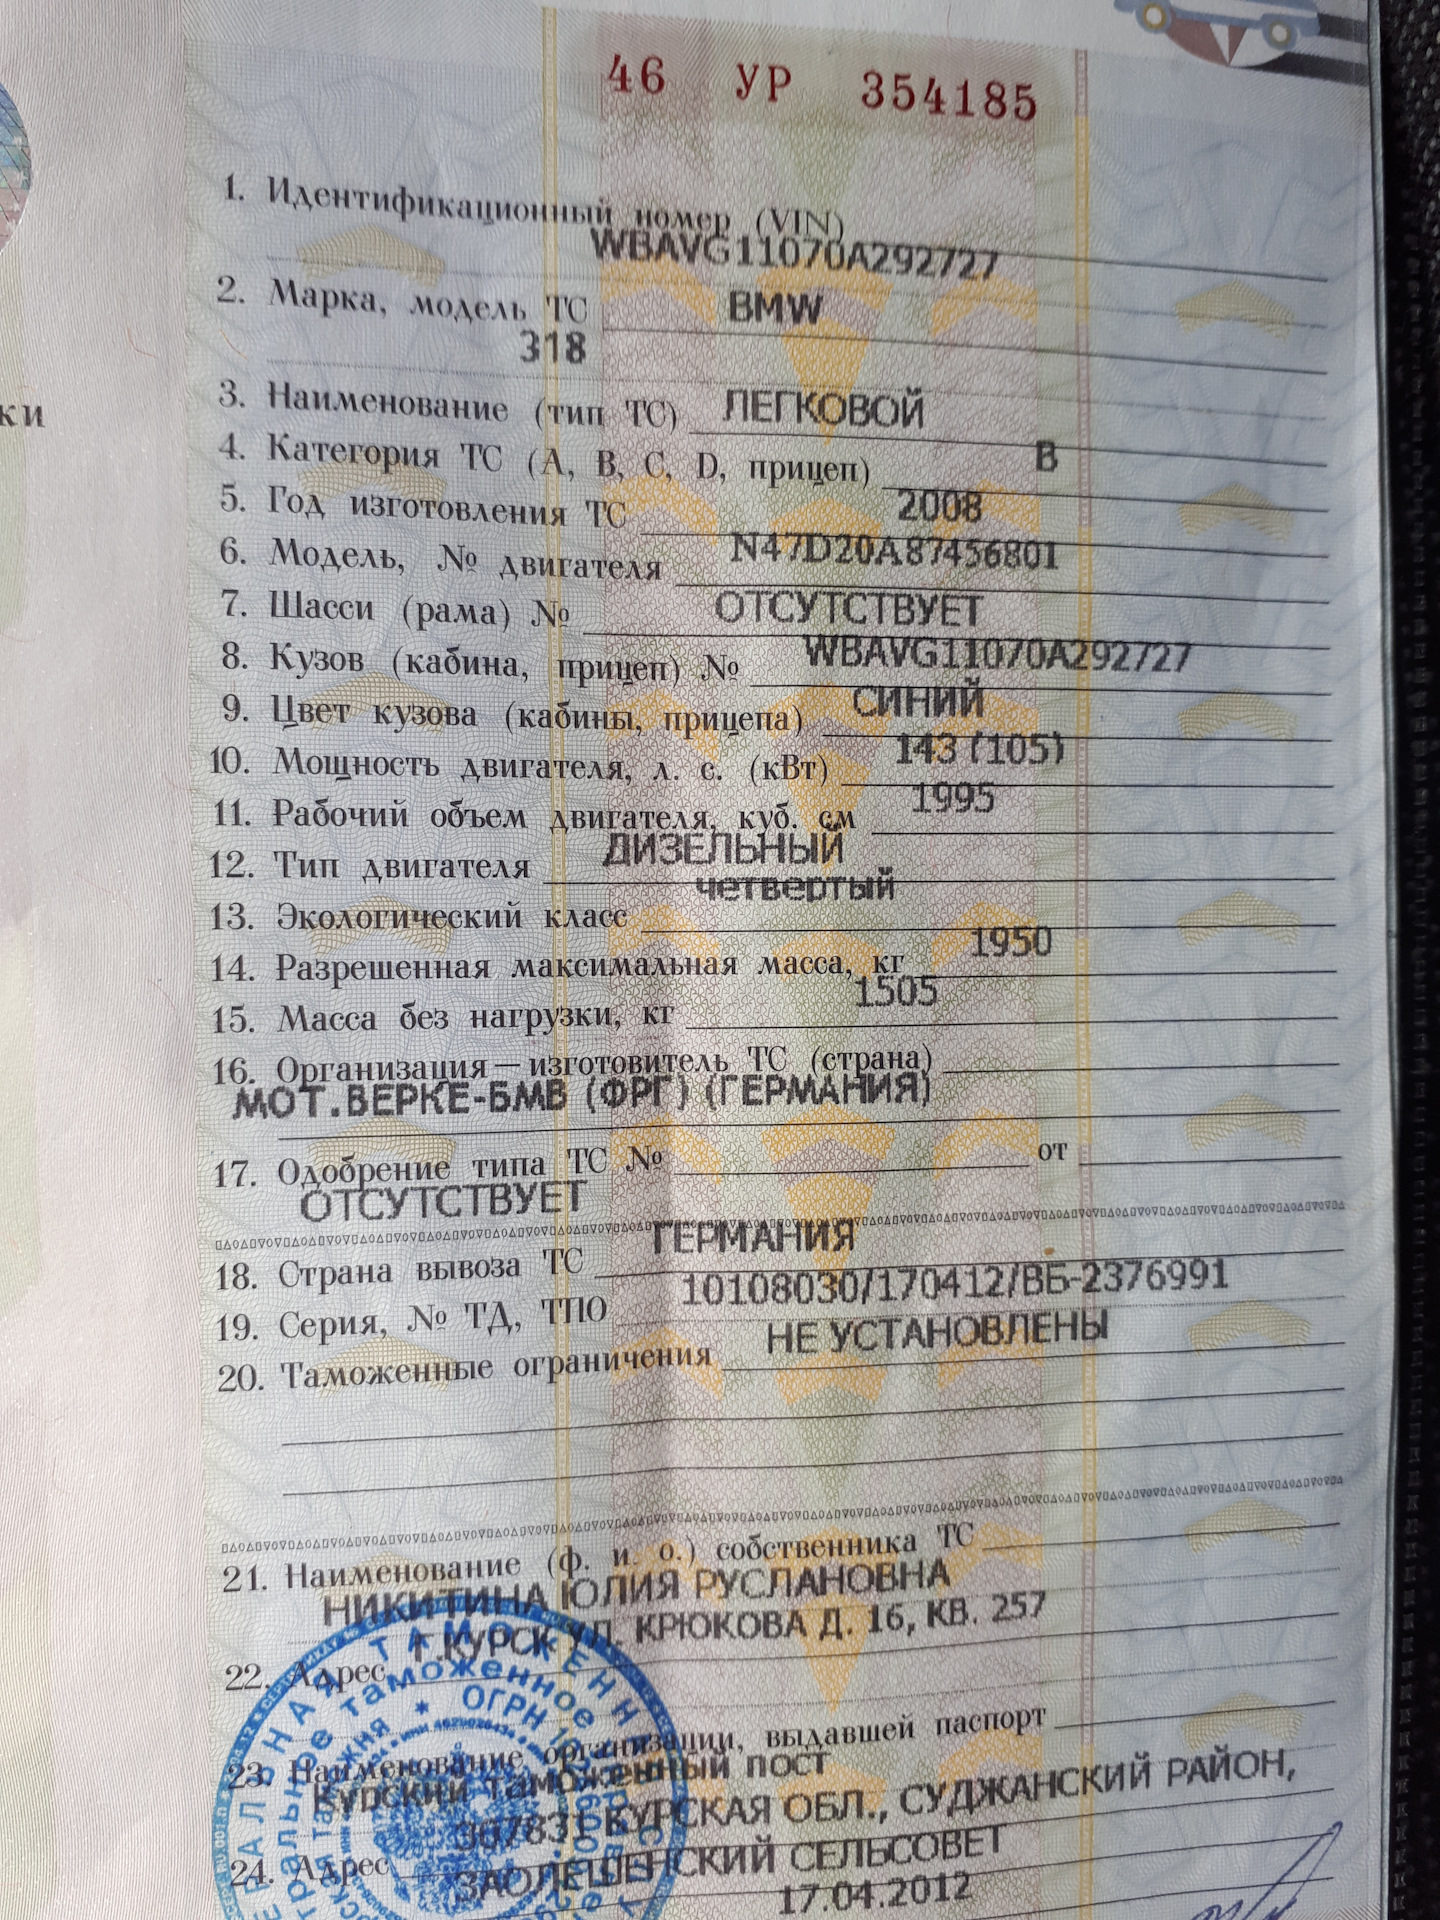 46 УР 354185
ки
1. Идентификационный номер (VIN)
WBAVG11070A292727
2. Марка, модель ТС BMW
318
3. Наименование (тип ТС) ЛЕГКОВОЙ
4. Категория ТС (A, B, C, D, прицеп) B
5. Год изготовления ТС 2008
6. Модель, № двигателя N47D20A87456801
7. Шасси (рама) № ОТСУТСТВУЕТ
8. Кузов (кабина, прицеп) № WBAVG11070A292727
9. Цвет кузова (кабины, прицепа) СИНИЙ
10. Мощность двигателя, л. с. (кВт) 143 (105)
11. Рабочий объем двигателя, куб. см 1995
12. Тип двигателя ДИЗЕЛЬНЫЙ
13. Экологический класс четвертый
14. Разрешенная максимальная масса, кг 1950
15. Масса без нагрузки, кг 1505
16. Организация—изготовитель ТС (страна)
МОТ.ВЕРКЕ-БМВ (ФРГ) (ГЕРМАНИЯ)
17. Одобрение типа ТС № от
ОТСУТСТВУЕТ
18. Страна вывоза ТС ГЕРМАНИЯ
19. Серия, № ТД, ТПО 10108030/170412/ВБ-2376991
20. Таможенные ограничения НЕ УСТАНОВЛЕНЫ
21. Наименование (ф. и. о.) собственника ТС
НИКИТИНА ЮЛИЯ РУСЛАНОВНА
22. Адрес Г.КУРСК УЛ. КРЮКОВА Д. 16, КВ. 257
23. Наименование организации, выдавшей паспорт
Курский таможенный пост
307831 КУРСКАЯ ОБЛ., СУДЖАНСКИЙ РАЙОН,
24. Адрес ЗАОЛЕШЕНСКИЙ СЕЛЬСОВЕТ
17.04.2012